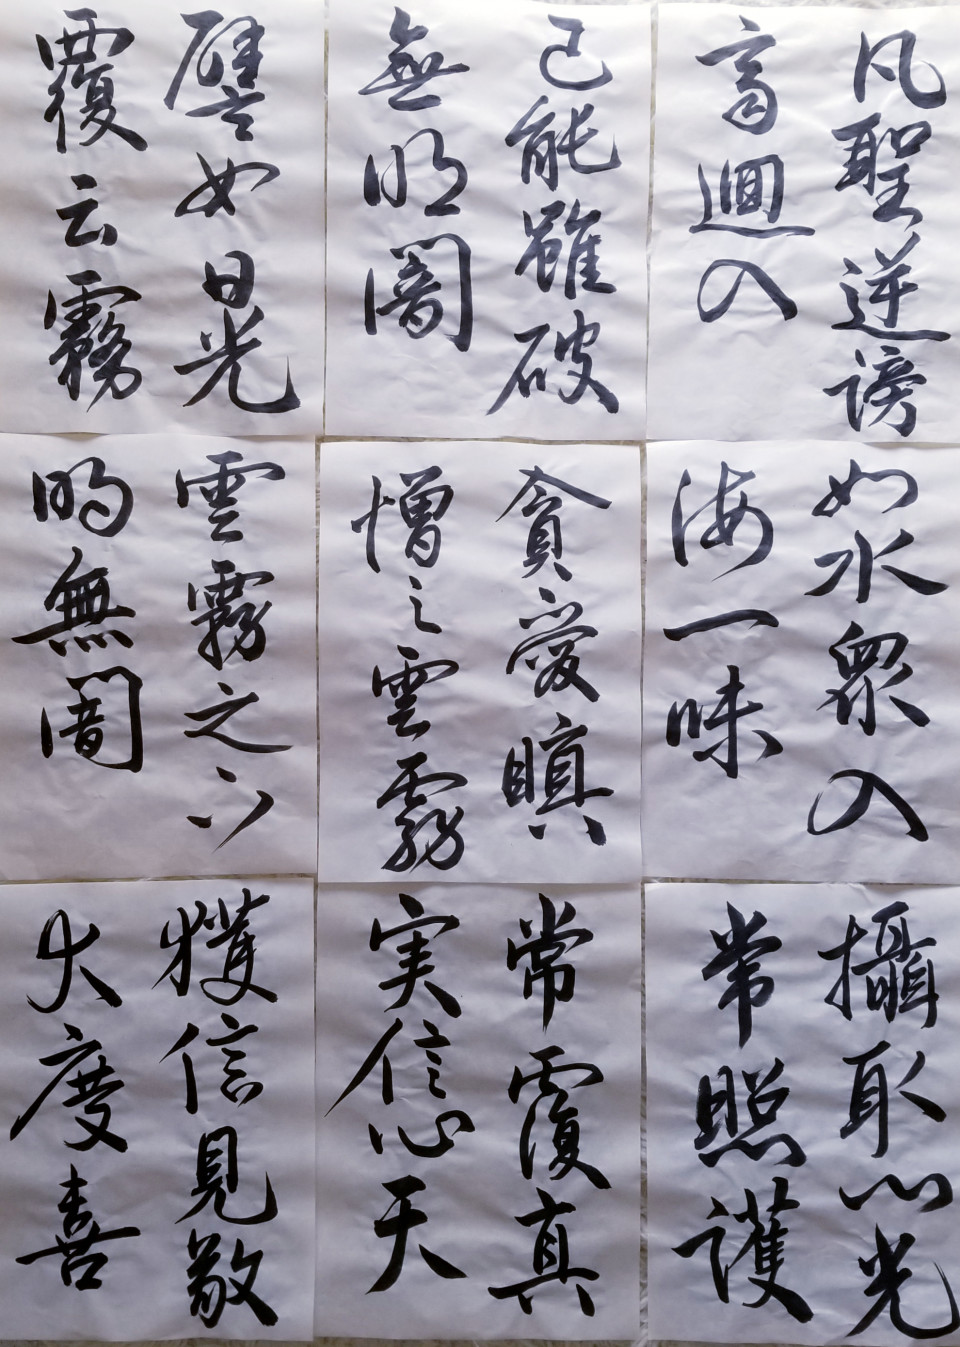 凡聖逆謗
斉迴入
如水衆入
海一味
攝取心光
常照護
已能雖破
無明闇
貪愛瞋
憎之雲霧
常覆真
実信心天
譬如日光
覆云霧
雲霧之下
明無闇
獲信見敬
大慶喜